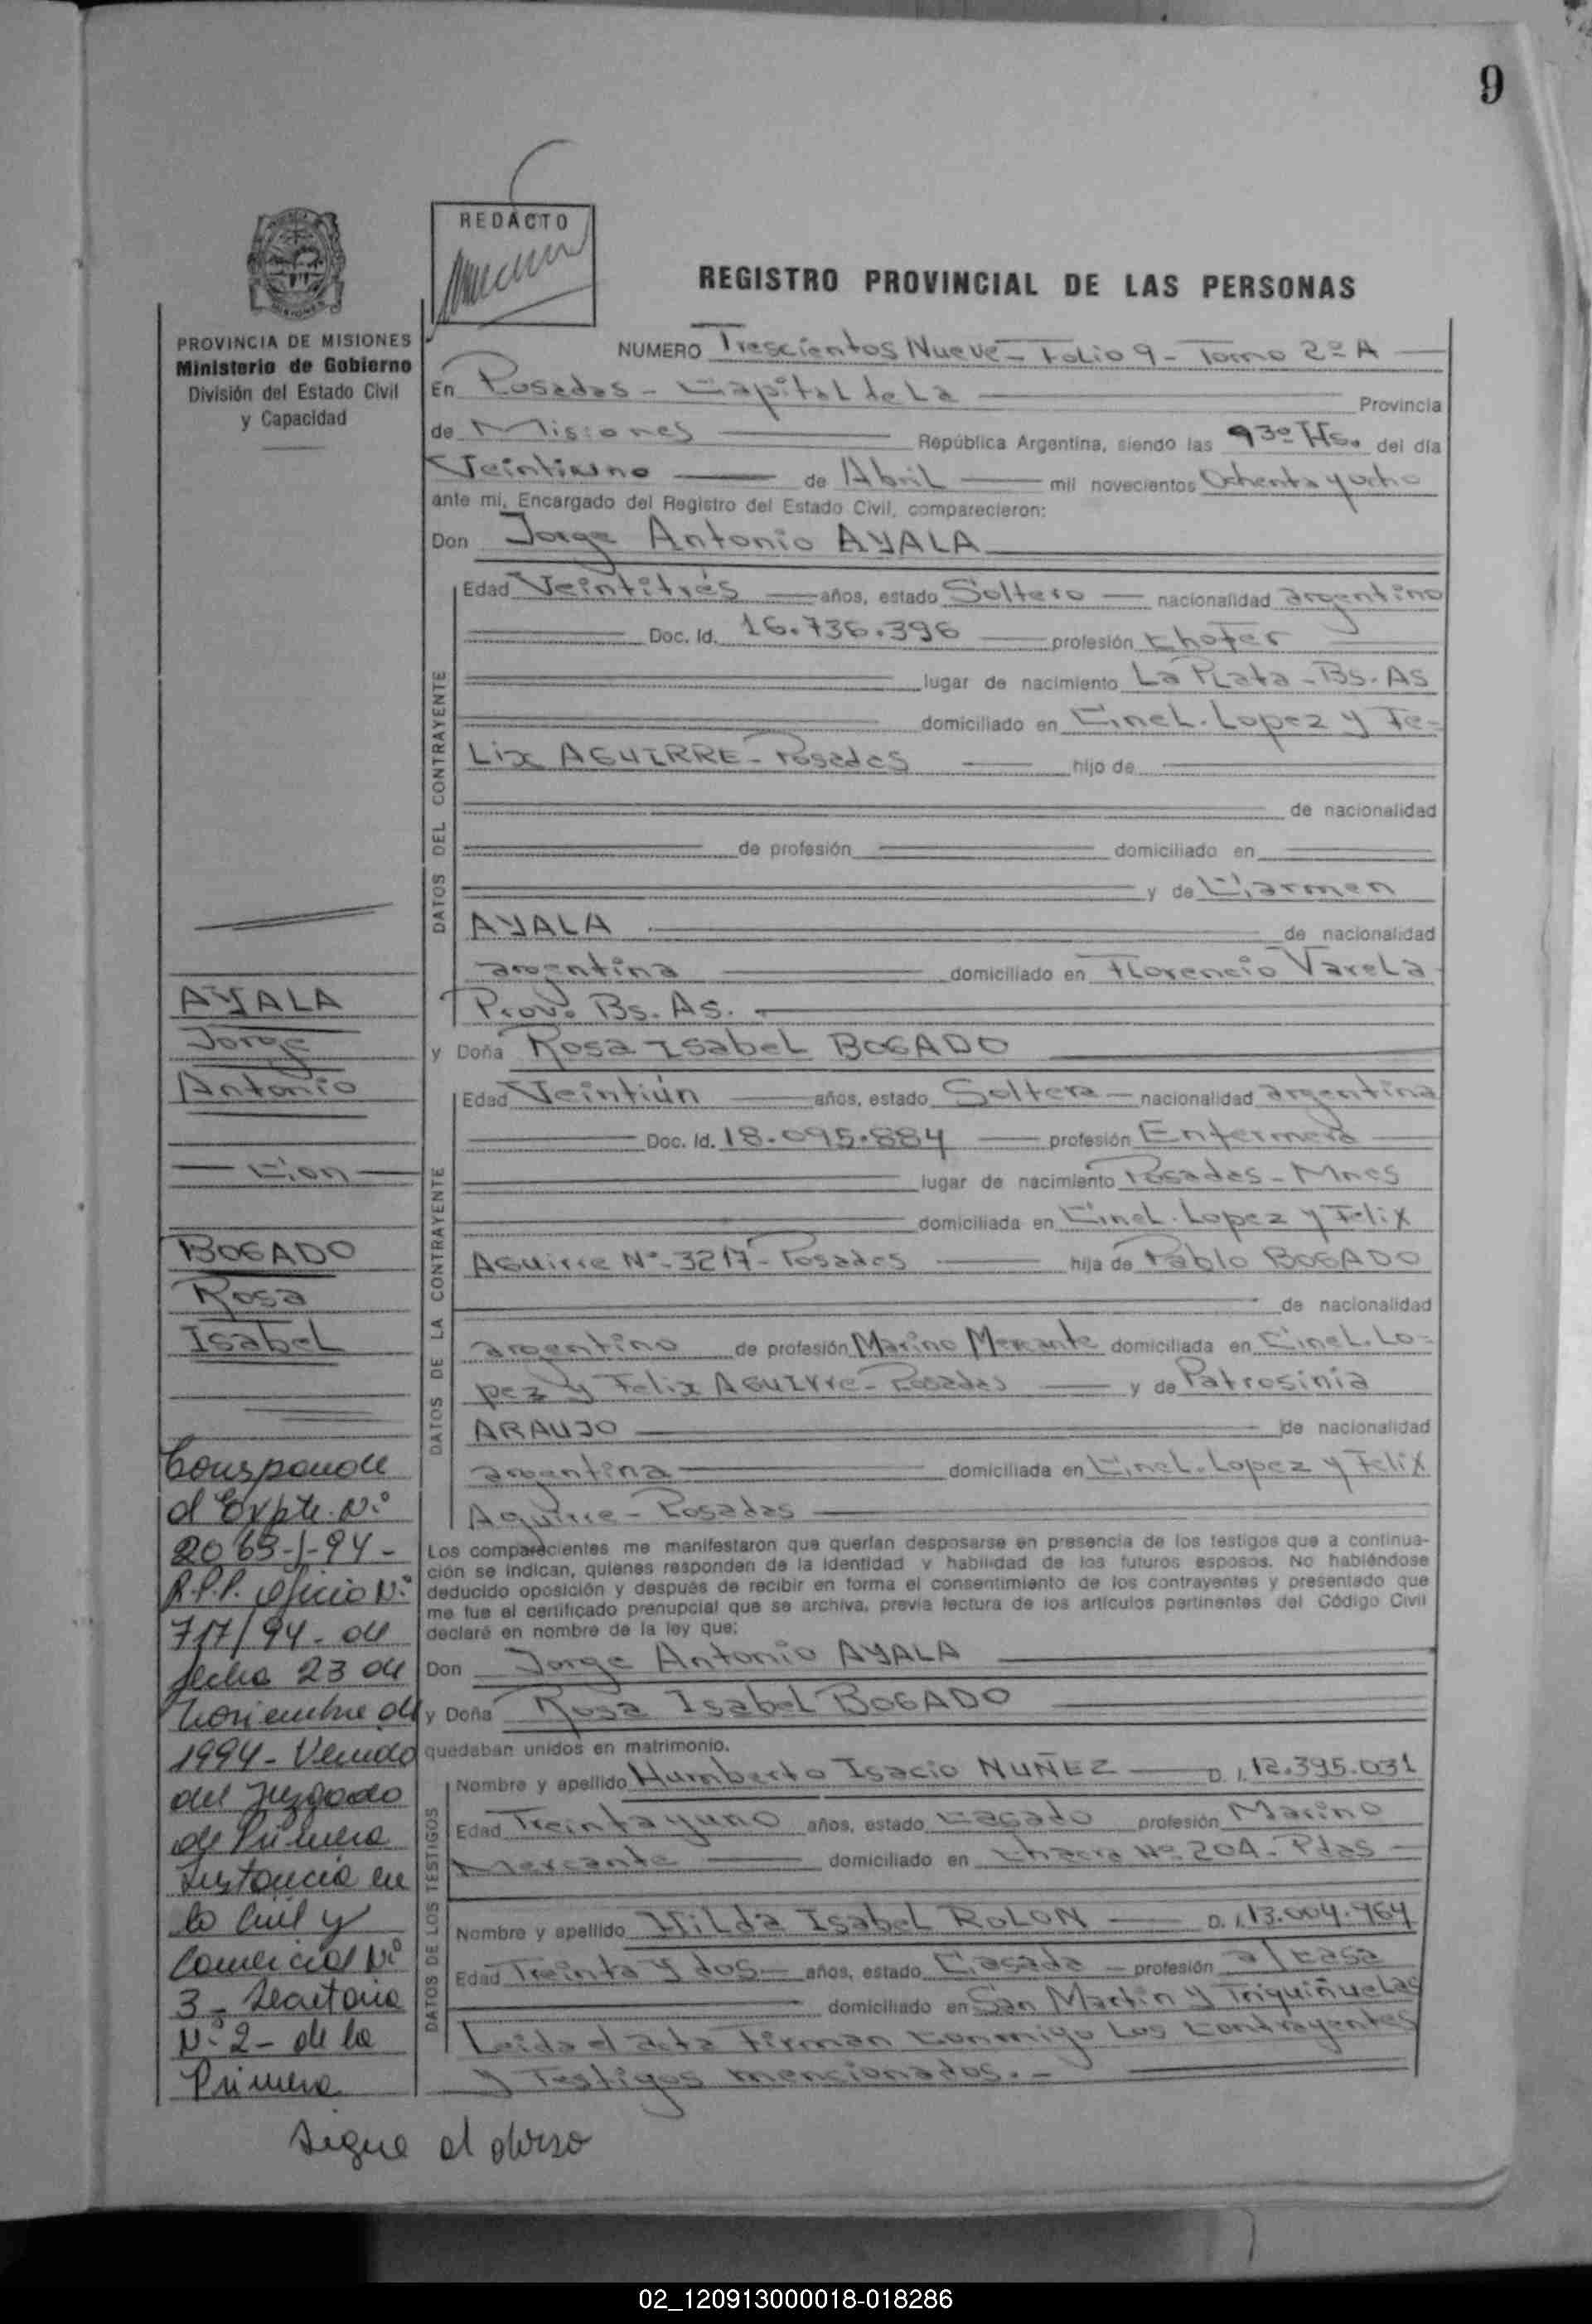 9
REDACTO
REGISTRO PROVINCIAL DE LAS PERSONAS
PROVINCIA DE MISIONES
Ministerio de Gobierno
División del Estado Civil
y Capacidad
NUMERO Trescientos Nueve - Folio 9 - Tomo 2º A
En Posadas - Capital de La Provincia
de Misiones República Argentina, siendo las 930 Hs. del día
Veintiuno de Abril mil novecientos Ochenta y ocho
ante mi, Encargado del Registro del Estado Civil, comparecieron:
Don Jorge Antonio AYALA
DATOS DEL CONTRAYENTE
Edad Veintitrés años, estado Soltero nacionalidad argentino
Doc. Id. 16.736.396 profesión Chofer
lugar de nacimiento La Plata - Bs. As
domiciliado en Cinel. Lopez y Fe-
Lix AGUIRRE - Posadas hijo de
de nacionalidad
de profesión domiciliado en
y de Carmen
AYALA de nacionalidad
argentina domiciliado en Florencio Varela
Prov. Bs. As.
y Doña Rosa Isabel BOGADO
DATOS DE LA CONTRAYENTE
Edad Veintiún años, estado Soltera nacionalidad argentina
Doc. Id. 18.095.884 profesión Enfermera
lugar de nacimiento Posadas - Mnes
domiciliada en Cinel. Lopez y Felix
Aguirre Nº 3217 - Posadas hija de Pablo BOGADO
de nacionalidad
argentino de profesión Marino Mercante domiciliada en Cinel. Lo-
pez y Felix AGUIrre - Posadas y de Patrosinia
ARAUJO de nacionalidad
argentina domiciliada en Cinel. Lopez y Felix
Aguirre - Posadas
Los comparecientes me manifestaron que querían desposarse en presencia de los testigos que a continua-
ción se indican, quienes responden de la identidad y habilidad de los futuros esposos. No habiéndose
deducido oposición y después de recibir en forma el consentimiento de los contrayentes y presentado que
me fue el certificado prenupcial que se archiva, previa lectura de los artículos pertinentes del Código Civil
declaré en nombre de la ley que:
Don Jorge Antonio AYALA
y Doña Rosa Isabel BOGADO
quedaban unidos en matrimonio.
DATOS DE LOS TESTIGOS
Nombre y apellido Humberto Isacio NUÑEZ D. I. 12.395.031
Edad Treinta y uno años, estado Casado profesión Marino
Mercante domiciliado en Chacra Nº 204 - Pdas
Nombre y apellido Hilda Isabel ROLON D. I. 13.004.964
Edad Treinta y dos años, estado Casada profesión a/casa
domiciliado en San Martin y Triquiñuelas
Leida el acta Firman conmigo Los contrayentes
y Testigos mencionados.-
AYALA
Jorge
Antonio
Con
BOGADO
Rosa
Isabel
Corresponde
al Expte. Nº
2069-J-94-
R.P.P. Oficio Nº
717/94 - de
fecha 23 de
Noviembre de
1994 - Venido
del Juzgado
de Primera
Instancia en
lo Civil y
Comercial Nº
3 - Secretaria
Nº 2 - de la
Primera
Sigue al dorso
02_120913000018-018286